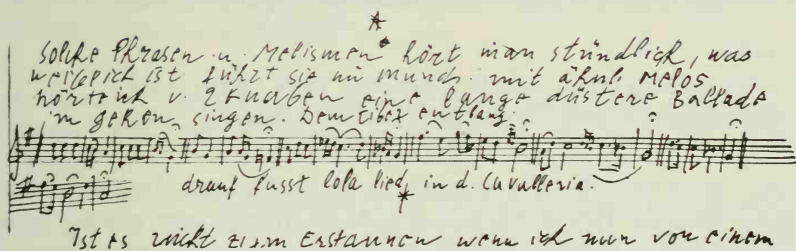 solche Phrasen u. Melismen hört man stündlich, was
weiblich ist führt sie im Mund. mit ähnl. Melos
hörte ich v. 2 Knaben eine lange düstere Ballade
im gehen singen. Dem Tiber entlang.
drauf fusst Lola lied, in d. Cavalleria.
Ist es nicht zum Erstaunen wenn ich nun von einem